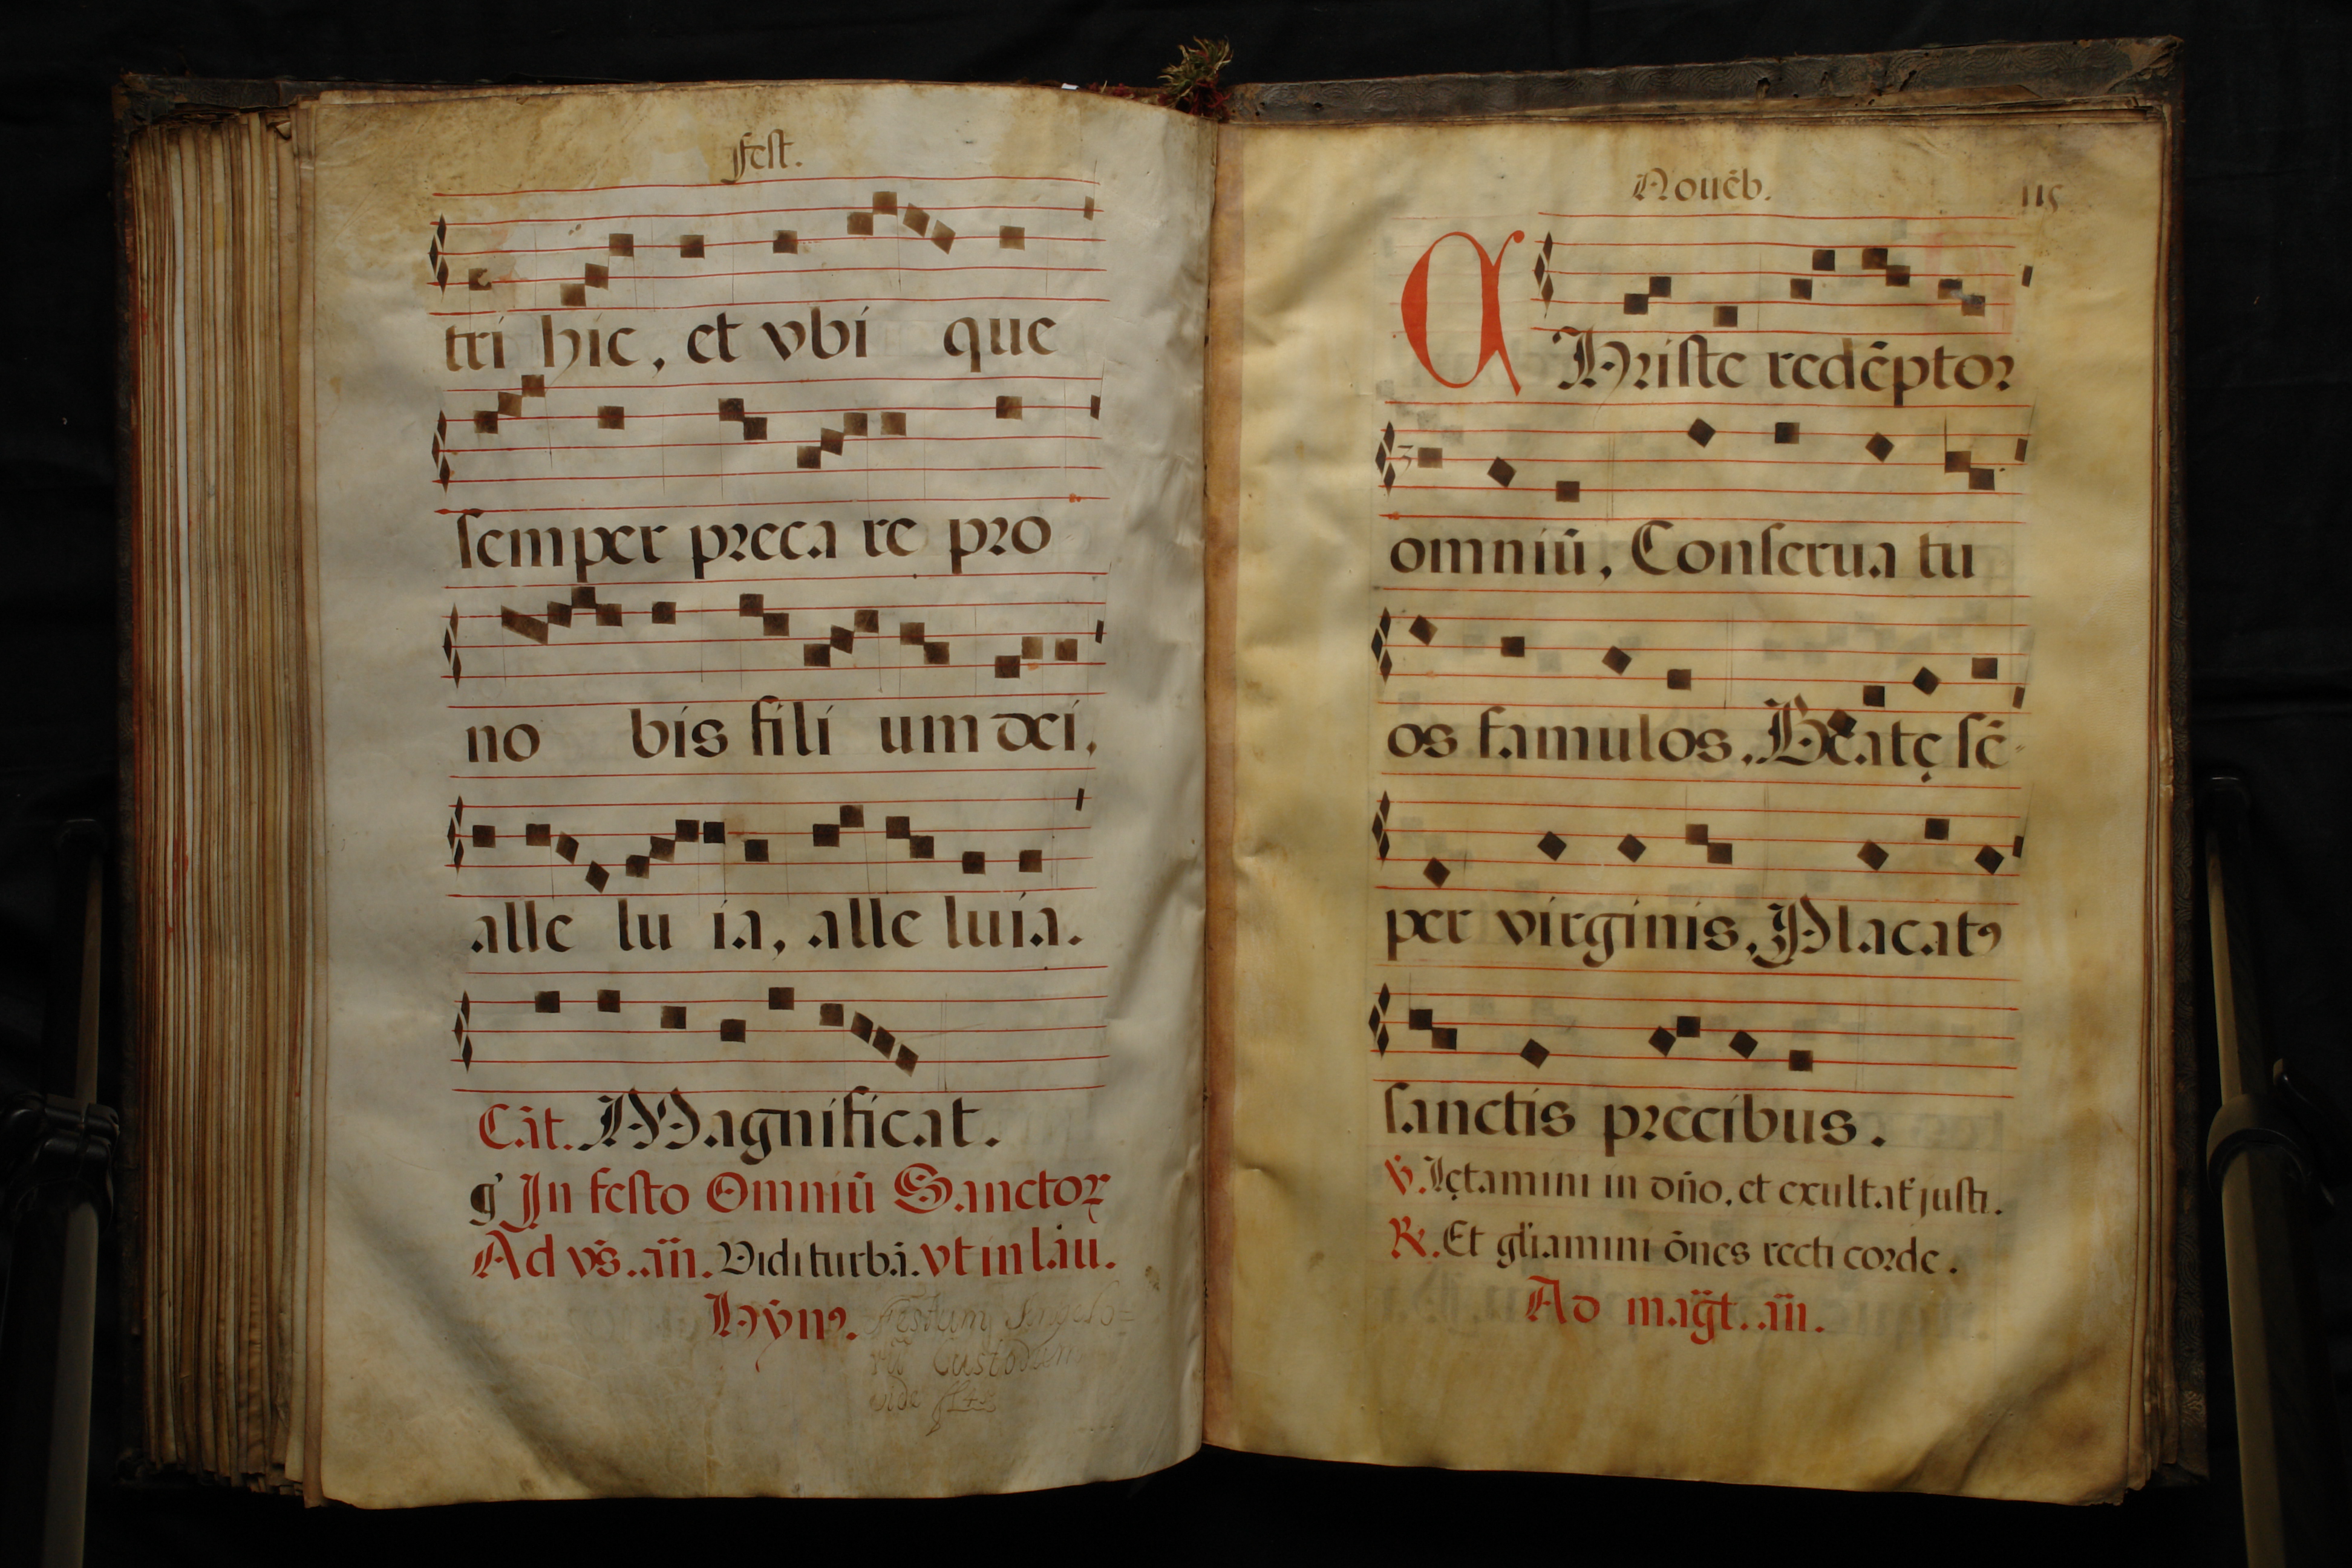 fest.
tri hic, et vbi que
semper preca re pro
no bis fili um dei,
alle lu ia, alle luia.
Cāt. Magnificat.
g In festo Omniū Sanctoꝝ
Ad vs̄. añ. Vidi turbā. vt in lau.
Hȳnꝰ. Festum Angelo=
rũ Custodum
vide
Nouēb. 115
CHriste redēptor
omniū, Conserua tu
os famulos, Beatę sē-
per virginis, Placatꝰ
sanctis precibus.
℣. Lętamini in dño, et exultat̃ justi.
℟. Et gl̃iamini ōnes recti corde.
Ad mag̃t. añ.